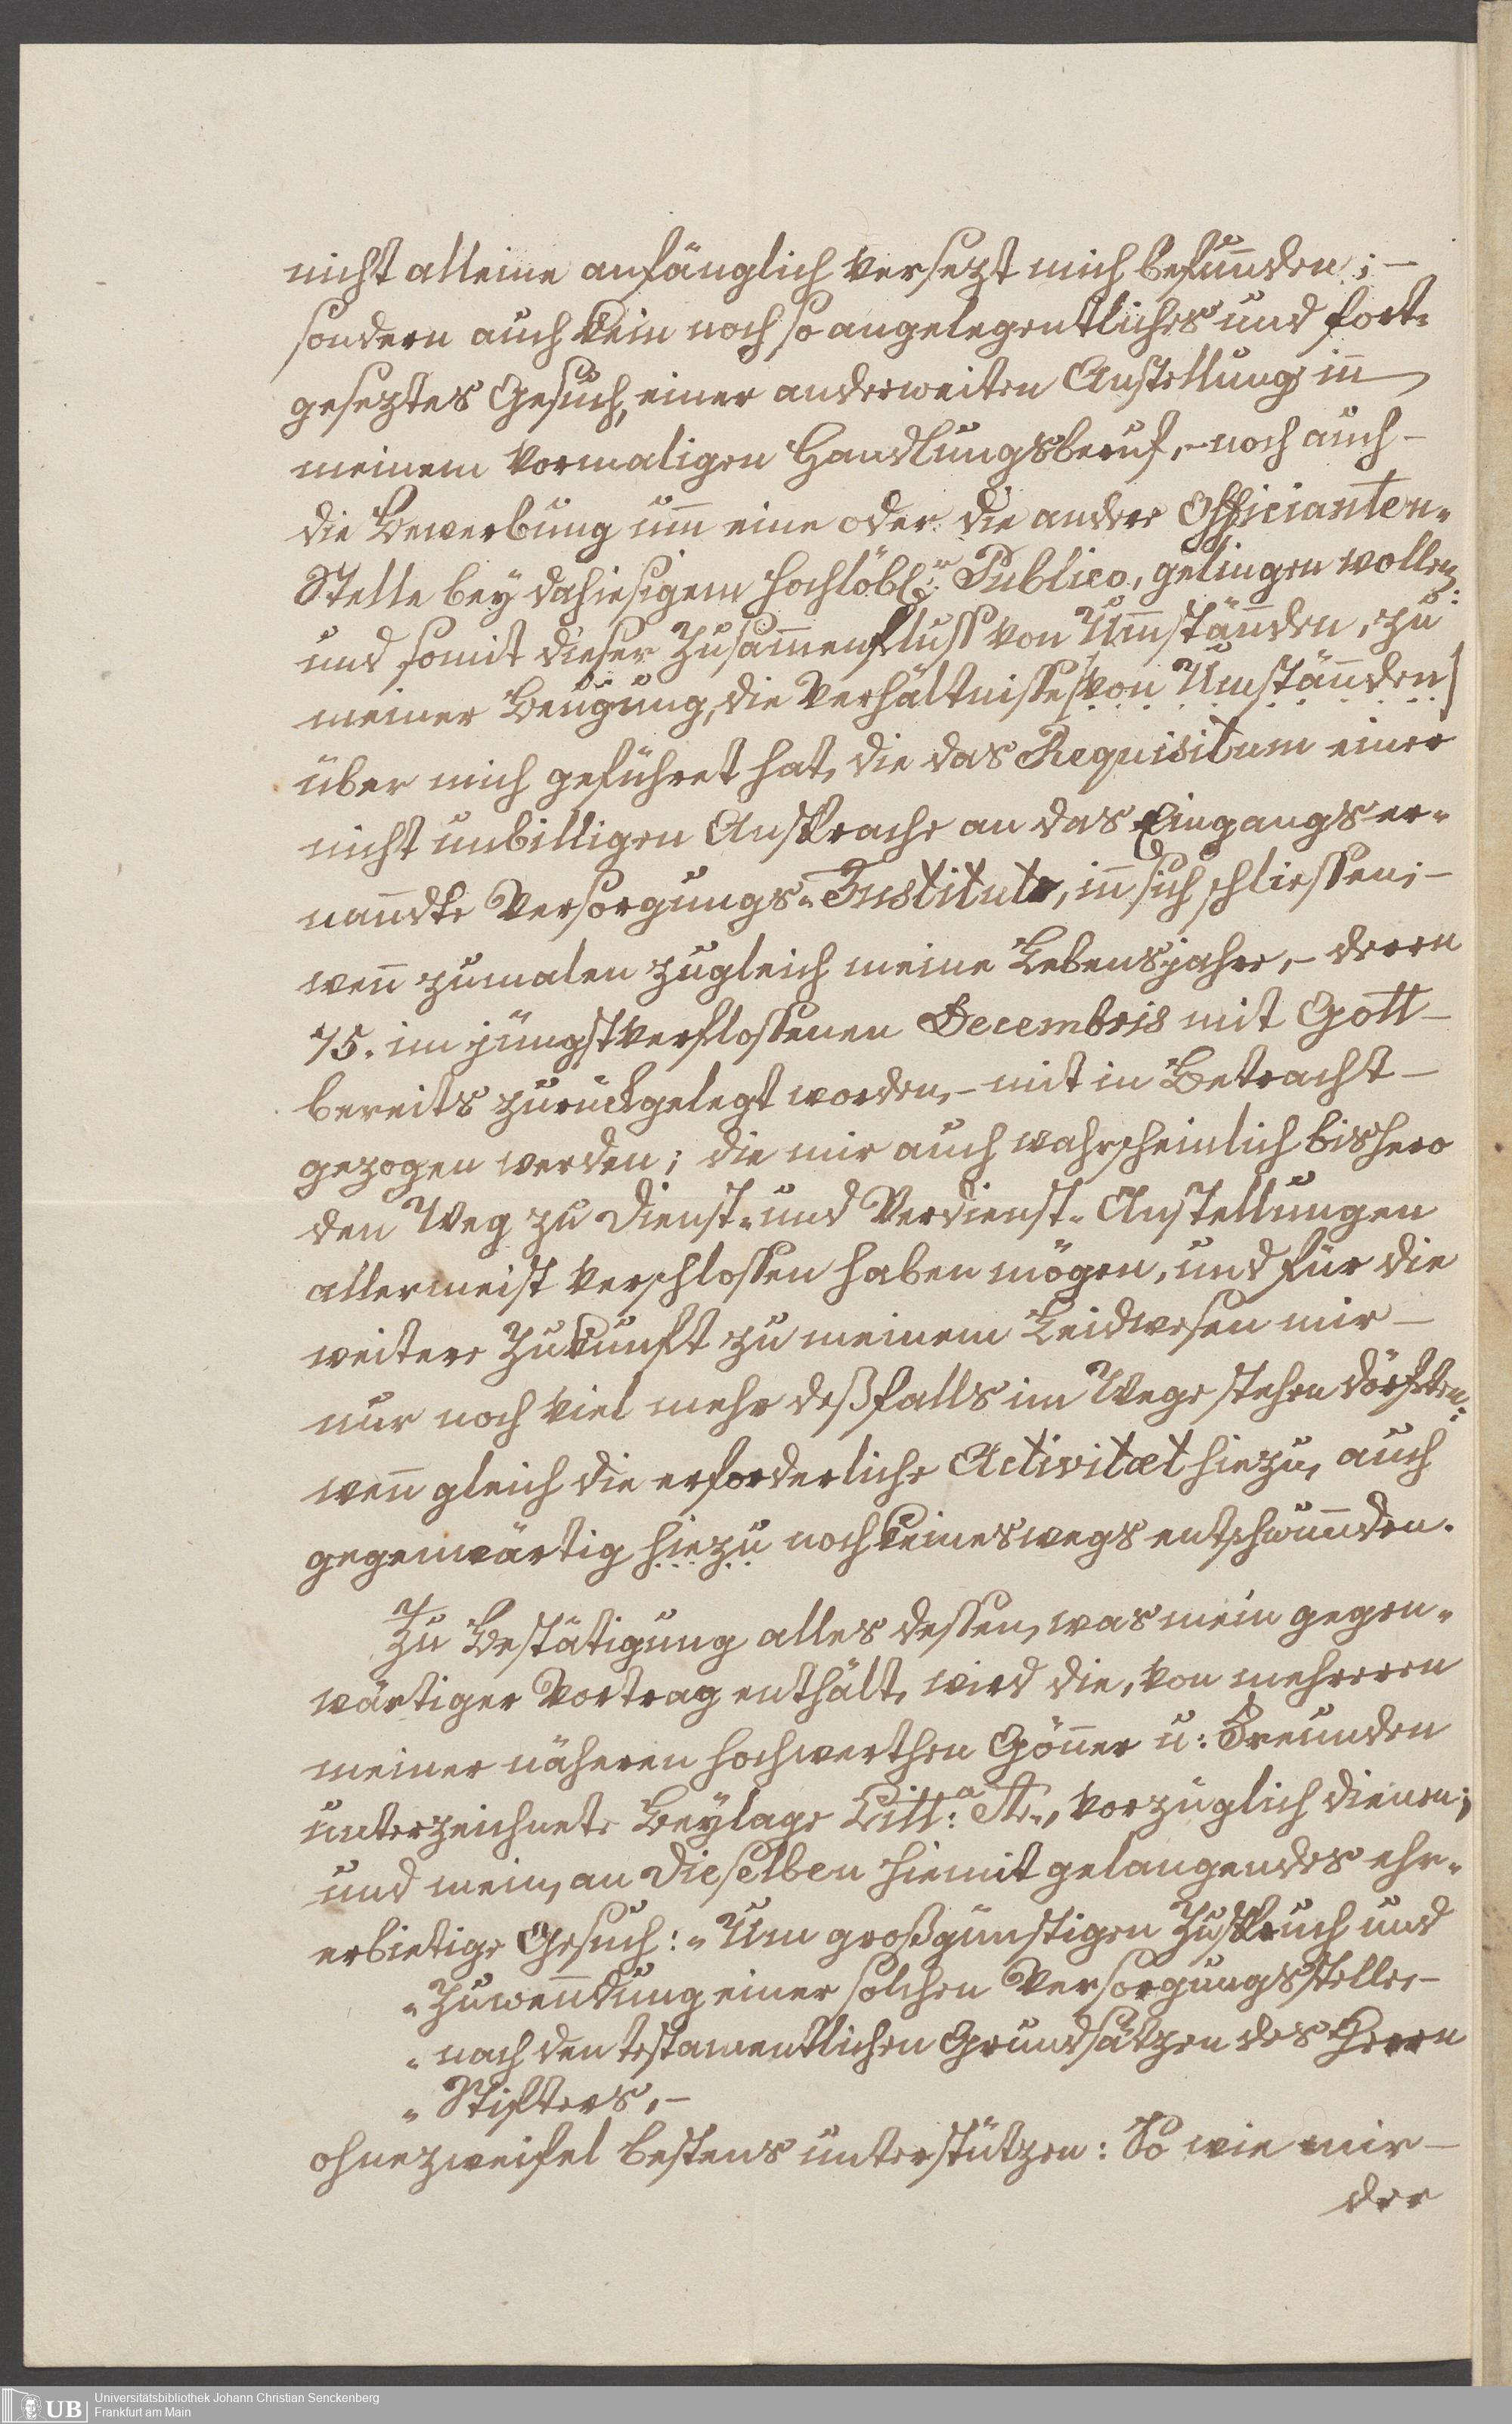 nicht alleine anfänglich versezt mich befun̄den; –
sondern auch kein noch so angelegentliches und fort-
geseztes Gesuch, einer anderweiten Anstellung in̄
meinem vormaligen Handlungsberuf, – noch auch –
die Bewerbung um̄ eine oder die andere Officianten-
Stelle bey dahiesigem hochlöbl:n Publico, gelingen wollen:
und somit dieser Zusam̄enfluss von Um̄stän̄den, zu
meiner Beugung, die Verhältnisse (von Umstän̄den)
über mich geführet hat, die das Requisitum einer
nicht unbilligen Ansprache an das Eingangs er-
nan̄dte Versorgungs-Institute, in̄ sich schliessen; –
wen̄ zumalen zugleich meine Lebensjahre, – deren
75. im jüngst verflossenen Decembris mit Gott –
bereits zurückgelegt worden, – mit in Betracht –
gezogen werden; die mir auch wahrscheinlich bishero
den Weg zu Dienst- und Verdienst-Anstellungen
allermeist verschlossen haben mögen, und für die
weitere Zukunft zu meinem Leidwesen mir –
nur noch viel mehr deßfalls im Wege stehen dörften:
wen̄ gleich die erforderliche Activitæt hiezu, auch
gegenwärtig hiezu noch keineswegs entschwun̄den.
Zu Bestätigung alles dessen, was mein gegen-
wärtiger Vortrag enthält, wird die, von mehreren
meiner näheren hochwerthen Gön̄er u: Freunden
unterzeichnete Beylage Litt:a A., vorzüglich dienen;
und mein, an Dieselben hiemit gelangendes ehr-
erbietige Gesuch: „Um großgünstigen Zuspruch und
„Zuwen̄dung einer solchen Versorgungsstelle, –
„nach den testamentlichen Grundsätzen des Herrn
„Stifters, –
ohnezweifel bestens unterstützen: So wie mir –
der
Universitätsbibliothek Johann Christian Senckenberg
Frankfurt am Main
UB